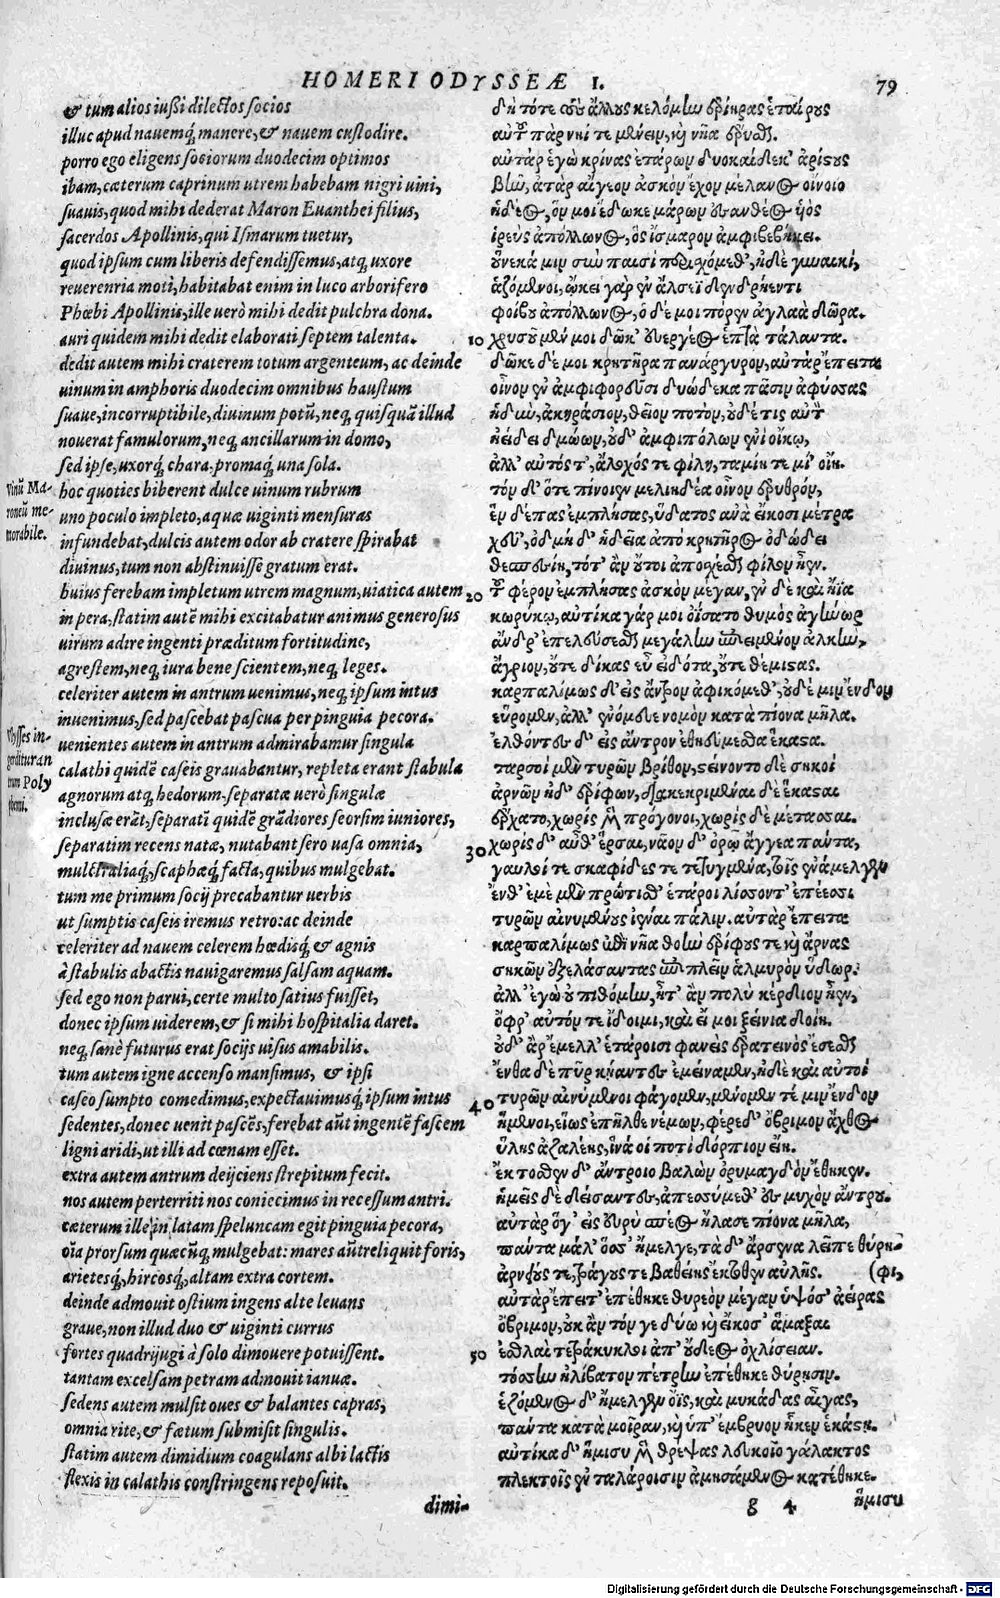 HOMERI ODYSSEÆ I. 79
& tum alios iußi dilectos socios
illuc apud nauemq́; manere, & nauem custodire.
porro ego eligens sociorum duodecim optimos
ibam, cæterum caprinum utrem habebam nigri uini,
suauis, quod mihi dederat Maron Euanthei filius,
sacerdos Apollinis, qui Ismarum tuetur,
quod ipsum cum liberis defendissemus, atq; uxore
reuerenria moti, habitabat enim in luco arborifero
Phœbi Apollinis, ille uerò mihi dedit pulchra dona.
auri quidem mihi dedit elaborati septem talenta.
dedit autem mihi craterem totum argenteum, ac deinde
uinum in amphoris duodecim omnibus haustum
suaue, incorruptibile, diuinum potũ, neq; quisquã illud
nouerat famulorum, neq; ancillarum in domo,
sed ipse, uxorq́; chara, promaq́; una sola.
Vinũ Ma-
roneũ me-
morabile.
hoc quoties biberent dulce uinum rubrum
uno poculo impleto, aquæ uiginti mensuras
infundebat, dulcis autem odor ab cratere spirabat
diuinus, tum non abstinuisse gratum erat.
huius ferebam impletum utrem magnum, uiatica autem
in pera, statim autẽ mihi excitabatur animus generosus
uirum adire ingenti præditum fortitudine,
agrestem, neq; iura bene scientem, neq; leges.
celeriter autem in antrum uenimus, neq; ipsum intus
inuenimus, sed pascebat pascua per pinguia pecora.
Vlysses in-
greditur an
trum Poly
phemi.
uenientes autem in antrum admirabamur singula
calathi quidẽ caseis grauabantur, repleta erant stabula
agnorum atq; hedorum. separatæ uerò singulæ
inclusæ erãt, separati quidẽ grãdiores seorsim iuniores,
separatim recens natæ, nutabant sero uasa omnia,
mulctraliaq́;, scaphæq́; facta, quibus mulgebat.
tum me primum socij precabantur uerbis
ut sumptis caseis iremus retro: ac deinde
celeriter ad nauem celerem hœdisq́; & agnis
à stabulis abactis nauigaremus salsam aquam.
sed ego non parui, certe multo satius fuisset,
donec ipsum uiderem, & si mihi hospitalia daret.
neq; sanè futurus erat socijs uisus amabilis.
tum autem igne accenso mansimus, & ipsi
caseo sumpto comedimus, expectauimusq́; ipsum intus
sedentes, donec uenit pascẽs, ferebat aũt ingentẽ fascem
ligni aridi, ut illi ad cœnam esset.
extra autem antrum deijciens strepitum fecit.
nos autem perterriti nos coniecimus in recessum antri.
cæterum ille in latam speluncam egit pinguia pecora,
oĩa prorsum quæcũq; mulgebat: mares aũt reliquit foris,
arietesq́;, hircosq́;, altam extra cortem.
deinde admouit ostium ingens alte leuans
graue, non illud duo & uiginti currus
fortes quadrijugi à solo dimouere potuissent.
tantam excelsam petram admouit ianuæ.
sedens autem mulsit oues & balantes capras,
omnia rite, & fœtum submisit singulis.
statim autem dimidium coagulans albi lactis
flexis in calathis constringens reposuit.
dimi-
δὴ τότε σοὺς ἄλλους κελόμην ἐρίηρας ἑταίρους
αὐτοῦ πὰρ νηί τε μένειν, καὶ νῆα ἔρυσθαι.
αὐτὰρ ἐγὼ κρίνας ἑτάρων δυοκαίδεκ' ἀρίστους
βῆν, ἀτὰρ αἴγεον ἀσκὸν ἔχον μέλανος οἴνοιο
ἡδέος, ὅν μοι ἔδωκε μάρων εὐανθέος υἱὸς
ἱρεὺς ἀπόλλωνος, ὃς ἴσμαρον ἀμφιβεβήκει.
οὕνεκά μιν σὺν παισὶ περισχόμεθ', ἠδὲ γυναικί,
ἁζόμενοι, ᾤκει γὰρ ἐν ἄλσεϊ δενδρήεντι
φοίβου ἀπόλλωνος, ὁ δέ μοι πόρεν ἀγλαὰ δῶρα.
10 χρυσοῦ μέν μοι δῶκ' εὐεργέος ἑπτὰ τάλαντα.
δῶκε δέ μοι κρητῆρα πανάργυρον, αὐτὰρ ἔπειτα
οἶνον ἐν ἀμφιφορεῦσι δυώδεκα πᾶσιν ἀφύσσας
ἡδὺν, ἀκηράσιον, θεῖον ποτὸν, οὐδέ τις αὐτὸν
ἠείδει δμώων, οὐδ' ἀμφιπόλων ἐνὶ οἴκῳ,
ἀλλ' αὐτός τ', ἄλοχός τε φίλη, ταμίη τε μί' οἴη.
τὸν δ' ὅτε πίνοιεν μελιηδέα οἶνον ἐρυθρὸν,
ἓν δέπας ἐμπλήσας, ὕδατος ἀνὰ εἴκοσι μέτρα
χεῦ', ὀδμὴ δ' ἡδεῖα ἀπὸ κρητῆρος ὀδώδει
θεσπεσίη, τότ' ἂν οὔτοι ἀποσχέσθαι φίλον ἦεν.
20 τοῦ φέρον ἐμπλήσας ἀσκὸν μέγαν, ἐν δὲ καὶ ἤϊα
κωρύκῳ, αὐτίκα γάρ μοι ὀΐσατο θυμὸς ἀγήνωρ
ἄνδρ' ἐπελεύσεσθαι μεγάλην ἐπιειμένον ἀλκὴν,
ἄγριον, οὔτε δίκας εὖ εἰδότα, οὔτε θέμιστας.
καρπαλίμως δ' εἰς ἄντρον ἀφικόμεθ', οὐδέ μιν ἔνδον
εὕρομεν, ἀλλ' ἐνόμευε νομὸν κάτα πίονα μῆλα.
ἐλθόντες δ' εἰς ἄντρον ἐθηεύμεσθα ἕκαστα.
ταρσοὶ μὲν τυρῶν βρῖθον, στείνοντο δὲ σηκοὶ
ἀρνῶν ἠδ' ἐρίφων, διακεκριμέναι δὲ ἕκασται
ἔρχατο, χωρὶς μὲν πρόγονοι, χωρὶς δὲ μέτασσαι.
30 χωρὶς δ' αὖθ' ἕρσαι, νᾶον δ' ὀρῷ ἄγγεα πάντα,
γαυλοί τε σκαφίδες τε τετυγμένα, τοῖς ἐνάμελγεν
ἔνθ' ἐμὲ μὲν πρώτισθ' ἕταροι λίσσοντ' ἐπέεσσι
τυρῶν αἰνυμένους ἰέναι πάλιν. αὐτὰρ ἔπειτα
καρπαλίμως ἐπὶ νῆα θοὴν ἐρίφους τε καὶ ἄρνας
σηκῶν ἐξελάσαντας ἐπιπλεῖν ἁλμυρὸν ὕδωρ.
ἀλλ' ἐγὼ οὐ πιθόμην, ἦτ' ἂν πολὺ κέρδιον ἦεν,
ὄφρ' αὐτόν τε ἴδοιμι, καὶ εἴ μοι ξείνια δοίη.
οὐδ' ἄρ ἔμελλ' ἑτάροισι φανεὶς ἐρατεινὸς ἔσεσθαι
ἔνθα δὲ πῦρ κήαντες ἐμείναμεν, ἠδὲ καὶ αὐτοὶ
40 τυρῶν αἰνύμενοι φάγομεν, μένομέν τέ μιν ἔνδον
ἥμενοι, εἵως ἐπῆλθε νέμων, φέρε δ' ὄβριμον ἄχθος
ὕλης ἀζαλέης, ἵνά οἱ ποτὶ δόρπιον εἴη.
ἔκτοσθεν δ' ἄντροιο βαλὼν ὀρυμαγδὸν ἔθηκεν.
ἡμεῖς δὲ δείσαντες, ἀπεσσύμεθ' ἐς μυχὸν ἄντρου.
αὐτὰρ ὅγ' εἰς εὐρὺ σπέος ἤλασε πίονα μῆλα,
πάντα μάλ' ὅσσ' ἤμελγε, τὰ δ' ἄρσενα λεῖπε θύρη-
ἀρνειούς τε, τράγους τε βαθείης ἔκτοθεν αὐλῆς. (φι,
αὐτὰρ ἔπειτ' ἐπέθηκε θυρεὸν μέγαν ὑψόσ' ἀείρας
ὄβριμον, οὐκ ἂν τόν γε δύω καὶ εἴκοσ' ἅμαξαι
50 ἐσθλαὶ τετράκυκλοι ἀπ' οὔδεος ὀχλίσειαν.
τόσσην ἠλίβατον πέτρην ἐπέθηκε θύρησιν.
ἑζόμενος δ' ἤμελγεν ὄϊς, καὶ μηκάδας αἶγας,
πάντα κατὰ μοῖραν, καὶ ὑπ' ἔμβρυον ἧκεν ἑκάστη.
αὐτίκα δ' ἥμισυ μὲν θρέψας λευκοῖο γάλακτος
πλεκτοῖς ἐν ταλάροισιν ἀμησάμενος κατέθηκε.
g 4 ἥμισυ
Digitalisierung gefördert durch die Deutsche Forschungsgemeinschaft - DFG